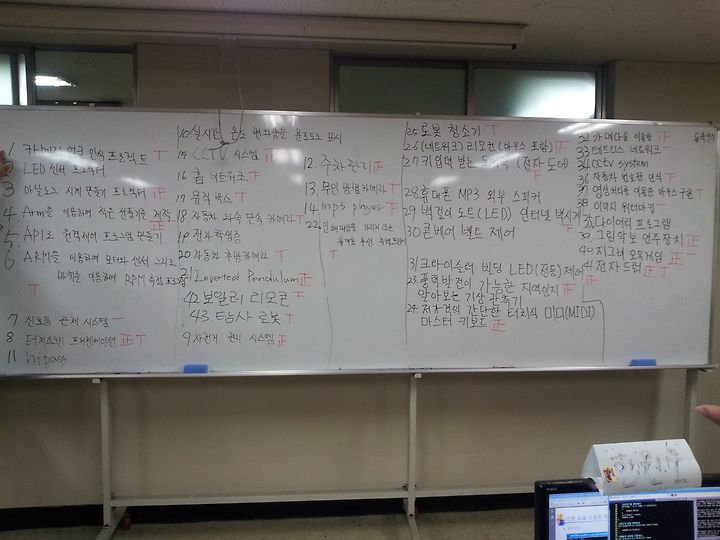 1 카메라 얼굴 인식 프로젝트 T
2 LED 센서 프로젝터
3 아날로그 시계 만들기 프로젝터 正
4 Arm을 이용하여 작은 선풍기 제작
5 API로 원격제어 프로그램 만들기
6 ARM을 이용하여 모터와 센서 그리고
이용하여 RPM 측정 프로그램
T
7 신호등 관제 시스템 一
8 터치스크린 프레젠테이션 正T
11 hipass
10 실시간 온도 변화량을 온도도로 표시
15 CCTV 시스템 正
16 홈 네트워크 T
17 뮤직 박스 T
18 자동차 과속 단속 카메라 T
19 전자학생증
20 자동차 후방카메라 T
21 Inverted Pendulum 正
42 보일러 리모콘 F
43. 탐사 로봇 T
9 자전거 관리 시스템 正
12 주차관리 正
13. 무인 방범 카메라 T
14 mp3 player
22
25 로봇 청소기 T
26 (네트워크) 리모컨 (마우스 포함) 正
27 (전자 도어) F
28 휴대폰 MP3 외부 스피커
29 벽걸이 노트 (LED) 인터넷 벽시계
30 콘베어 벨트 제어 F
31 크라이슬러 빌딩 LED(전등)제어
23. 풍력발전이 가능한 지역인지 正
알아보는 기상 관측기
24. 저가격의 간단한 터치식 미디(MIDI)
마스터 키보드 正
32 카메라를 이용한 正
33 테트리스 네트워크 一
34 cctv system
35 자동차 번호판 인식 F
37 영상처리를 이용한 마우스 구현 T
38 이미지 워터마킹 一
다이어리 프로그램
그림악보 연주장치 正
40 지그비 오목게임 正一
41 전자드럼 正T